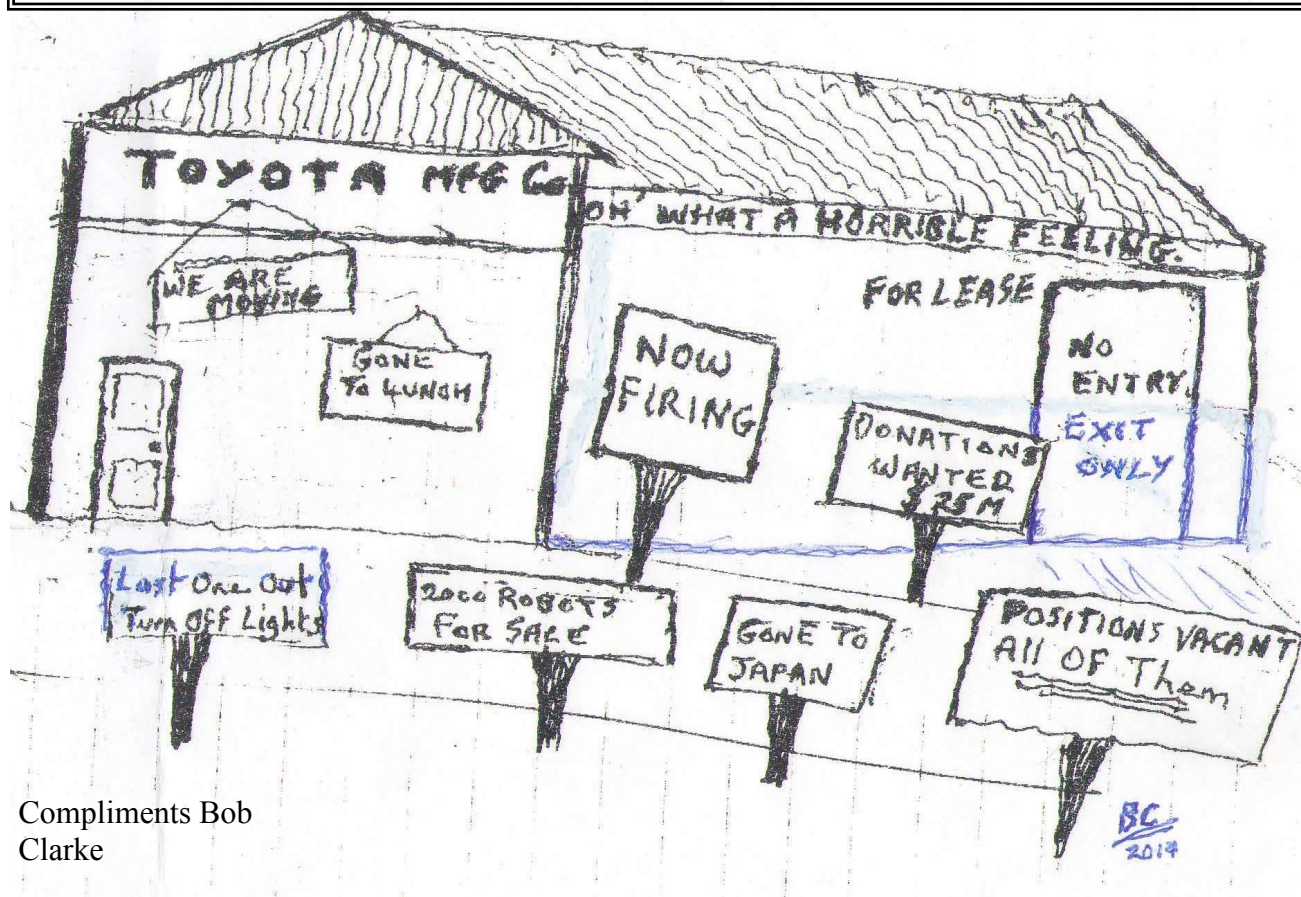 TOYOTA MFG Co
OH' WHAT A HORRIBLE FEELING.
WE ARE
MOVING
GONE
To LUNCH
FOR LEASE
NOW
FIRING
NO
ENTRY.
EXIT
ONLY
DONATIONS
WANTED
$ 25 M
Last One Out
Turn Off Lights
2000 ROBOTS
FOR SALE
GONE TO
JAPAN
POSITIONS VACANT
All OF Them
BC
2014
Compliments Bob
Clarke